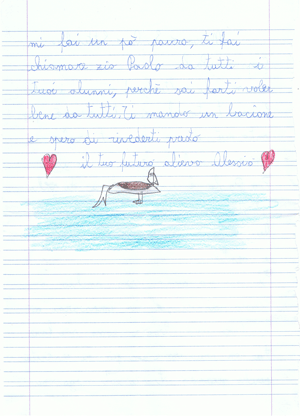 mi fai un pò paura, ti fai
chiamare zio Paolo da tutti i
tuoi alunni, perchè sai farti voler
bene da tutti. Ti mando un bacione
e spero di rivederti presto
il tuo futuro allievo Alessio